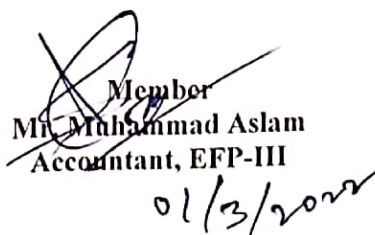 Member
Mr. Muhammad Aslam
Accountant, EFP-III
01/3/2022